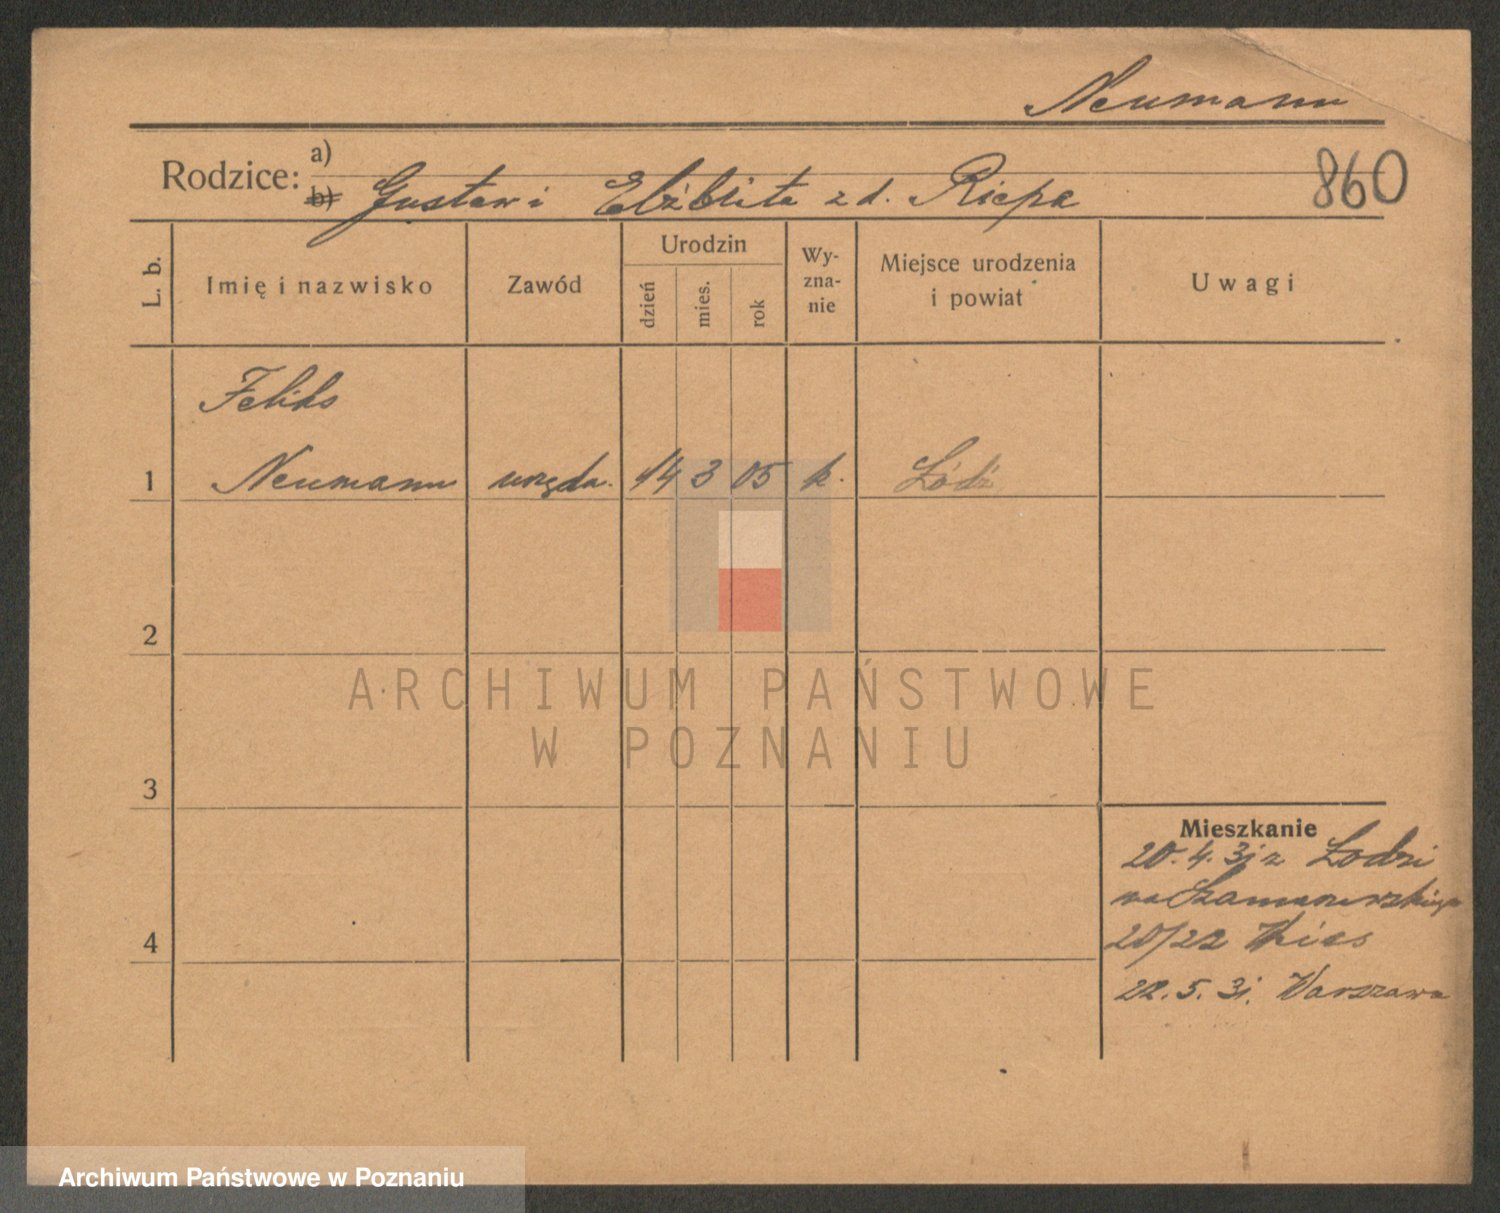 Neumann
860
Rodzice: a)
b) Gustaw i Elżbieta z d. Riepe
L. b. Imię i nazwisko Zawód Urodzin dzień mies. rok Wy-zna-nie Miejsce urodzenia i powiat Uwagi
Feliks
1 Neumann urzędn. 14 3 05 k. Łódź
2
ARCHIWUM PAŃSTWOWE
W POZNANIU
3
Mieszkanie
20.4.31 z Łodzi
na Szamarzewskiego
20/22
4
22.5.31. Warszawa
Archiwum Państwowe w Poznaniu